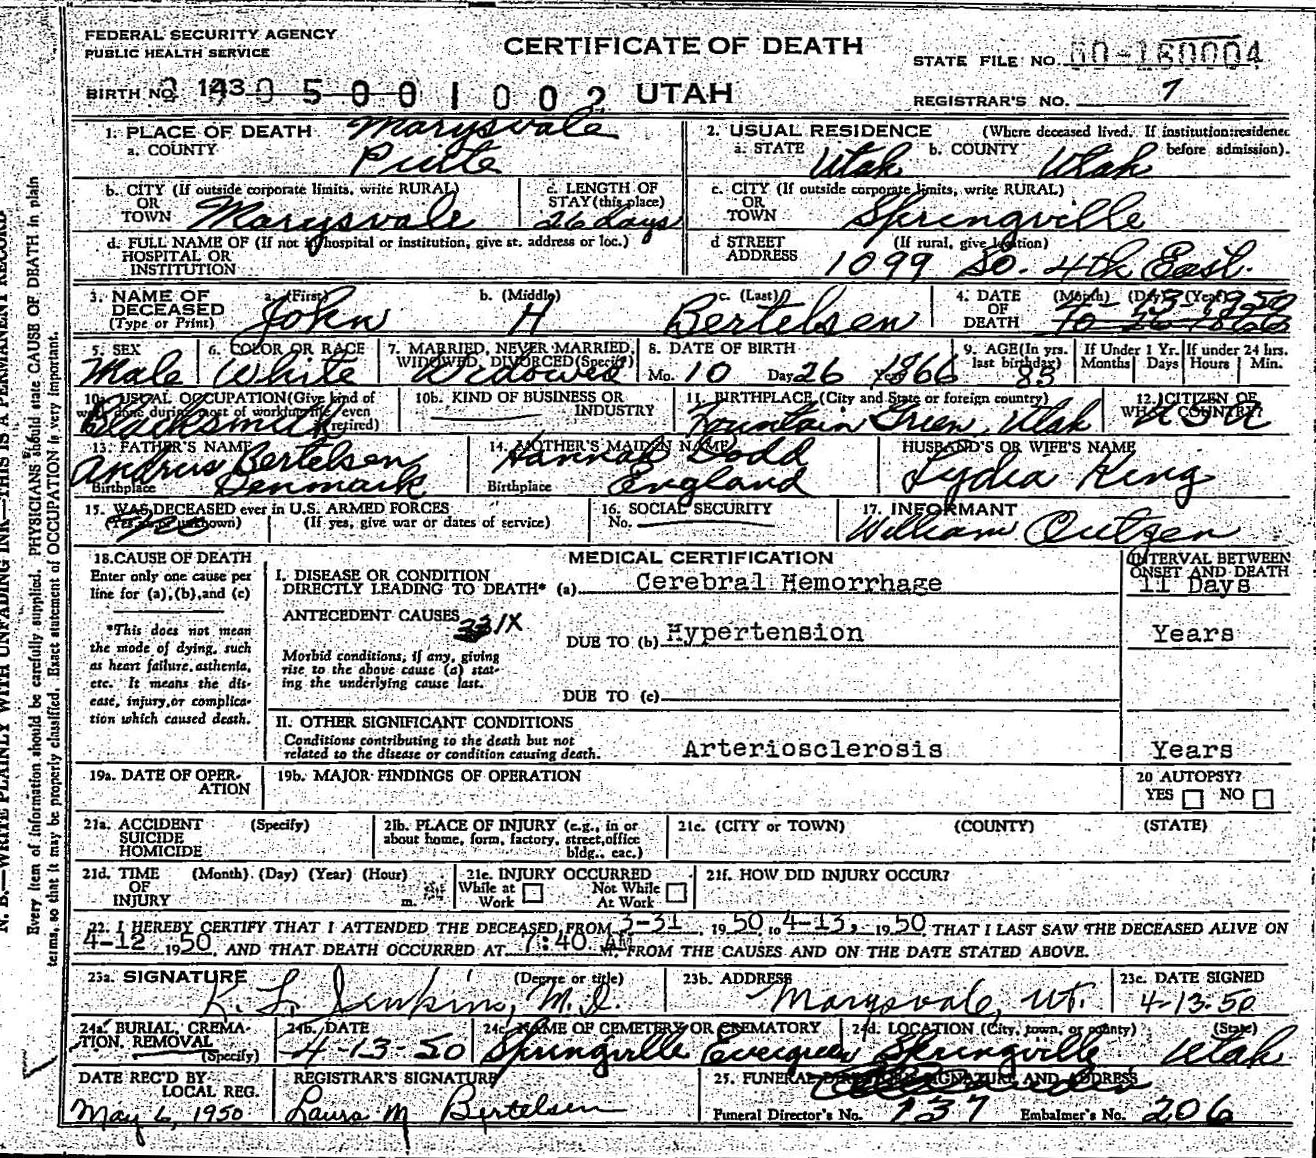 FEDERAL SECURITY AGENCY
PUBLIC HEALTH SERVICE
CERTIFICATE OF DEATH
STATE FILE NO. 50-180004
BIRTH NO. 143 05001002 UTAH
REGISTRAR'S NO. 7
1. PLACE OF DEATH Marysvale
a. COUNTY Piute
2. USUAL RESIDENCE (Where deceased lived. If institution:residence before admission).
a. STATE Utah b. COUNTY Utah
b. CITY (If outside corporate limits, write RURAL)
OR
TOWN Marysvale
c. LENGTH OF
STAY (this place)
26 days
c. CITY (If outside corporate limits, write RURAL)
OR
TOWN Springville
d. FULL NAME OF (If not in hospital or institution, give st. address or loc.)
HOSPITAL OR
INSTITUTION
d STREET (If rural, give location)
ADDRESS 1099 So. 4th East.
3. NAME OF
DECEASED
(Type or Print)
a. (First) John
b. (Middle) H
c. (Last) Bertelsen
4. DATE
OF
DEATH
(Month) (Day) (Year)
13 1950
10 26 1866
5. SEX
Male
6. COLOR OR RACE
White
7. MARRIED, NEVER MARRIED,
WIDOWED, DIVORCED (Specify)
Widowed
8. DATE OF BIRTH
Mo. 10 Day 26 Year 1866
9. AGE (In yrs.
last birthday)
83
If Under 1 Yr.
Months Days
If under 24 hrs.
Hours Min.
10a. USUAL OCCUPATION (Give kind of
work done during most of working life, even
retired)
Blacksmith
10b. KIND OF BUSINESS OR
INDUSTRY
11. BIRTHPLACE (City and State or foreign country)
Fountain Green, Utah
12. CITIZEN OF
WHAT COUNTRY?
USA
13. FATHER'S NAME
Andrus Bertelsen
Birthplace Denmark
14. MOTHER'S MAIDEN NAME
Hannah Dodd
Birthplace England
HUSBAND'S OR WIFE'S NAME
Lydia King
15. WAS DECEASED ever in U.S. ARMED FORCES
(Yes, no or unknown) (If yes, give war or dates of service)
No
16. SOCIAL SECURITY
No.
17. INFORMANT
William Outzen
18. CAUSE OF DEATH
Enter only one cause per
line for (a), (b), and (c)
*This does not mean
the mode of dying, such
as heart failure, asthenia,
etc. It means the dis-
ease, injury, or complica-
tion which caused death.
MEDICAL CERTIFICATION
INTERVAL BETWEEN
ONSET AND DEATH
I. DISEASE OR CONDITION
DIRECTLY LEADING TO DEATH* (a) Cerebral Hemorrhage 11 Days
ANTECEDENT CAUSES 331X
DUE TO (b) Hypertension Years
Morbid conditions, if any, giving
rise to the above cause (a) stat-
ing the underlying cause last.
DUE TO (c)
II. OTHER SIGNIFICANT CONDITIONS
Conditions contributing to the death but not
related to the disease or condition causing death.
Arteriosclerosis Years
19a. DATE OF OPER-
ATION
19b. MAJOR FINDINGS OF OPERATION
20 AUTOPSY?
YES NO
21a. ACCIDENT (Specify)
SUICIDE
HOMICIDE
21b. PLACE OF INJURY (e.g., in or
about home, form, factory, street, office
bldg., eac.)
21c. (CITY or TOWN) (COUNTY) (STATE)
21d. TIME (Month) (Day) (Year) (Hour)
OF
INJURY m.
21e. INJURY OCCURRED
While at Work Not While At Work
21f. HOW DID INJURY OCCUR?
22. I HEREBY CERTIFY THAT I ATTENDED THE DECEASED FROM 3-31 1950 to 4-13, 1950 THAT I LAST SAW THE DECEASED ALIVE ON
4-12 1950, AND THAT DEATH OCCURRED AT 7:40 AM. FROM THE CAUSES AND ON THE DATE STATED ABOVE.
23a. SIGNATURE (Degree or title)
K. L. Jenkins, M.D.
23b. ADDRESS
Marysvale, Ut.
23c. DATE SIGNED
4-13-50
24a. BURIAL, CREMA-
TION, REMOVAL
(Specify)
24b. DATE
4-13-50
24c. NAME OF CEMETERY OR CREMATORY
Springville Evergreen
24d. LOCATION (City, town, or county) (State)
Springville Utah
DATE REC'D BY
LOCAL REG.
May 6, 1950
REGISTRAR'S SIGNATURE
Laura M Bertelsen
25. FUNERAL DIRECTOR'S SIGNATURE AND ADDRESS
Funeral Director's No. 737 Embalmer's No. 206
N. B.—WRITE PLAINLY WITH UNFADING INK—THIS IS A PERMANENT RECORD
Every item of information should be carefully supplied. PHYSICIANS should state CAUSE OF DEATH in plain
terms, so that it may be properly classified. Exact statement of OCCUPATION is very important.